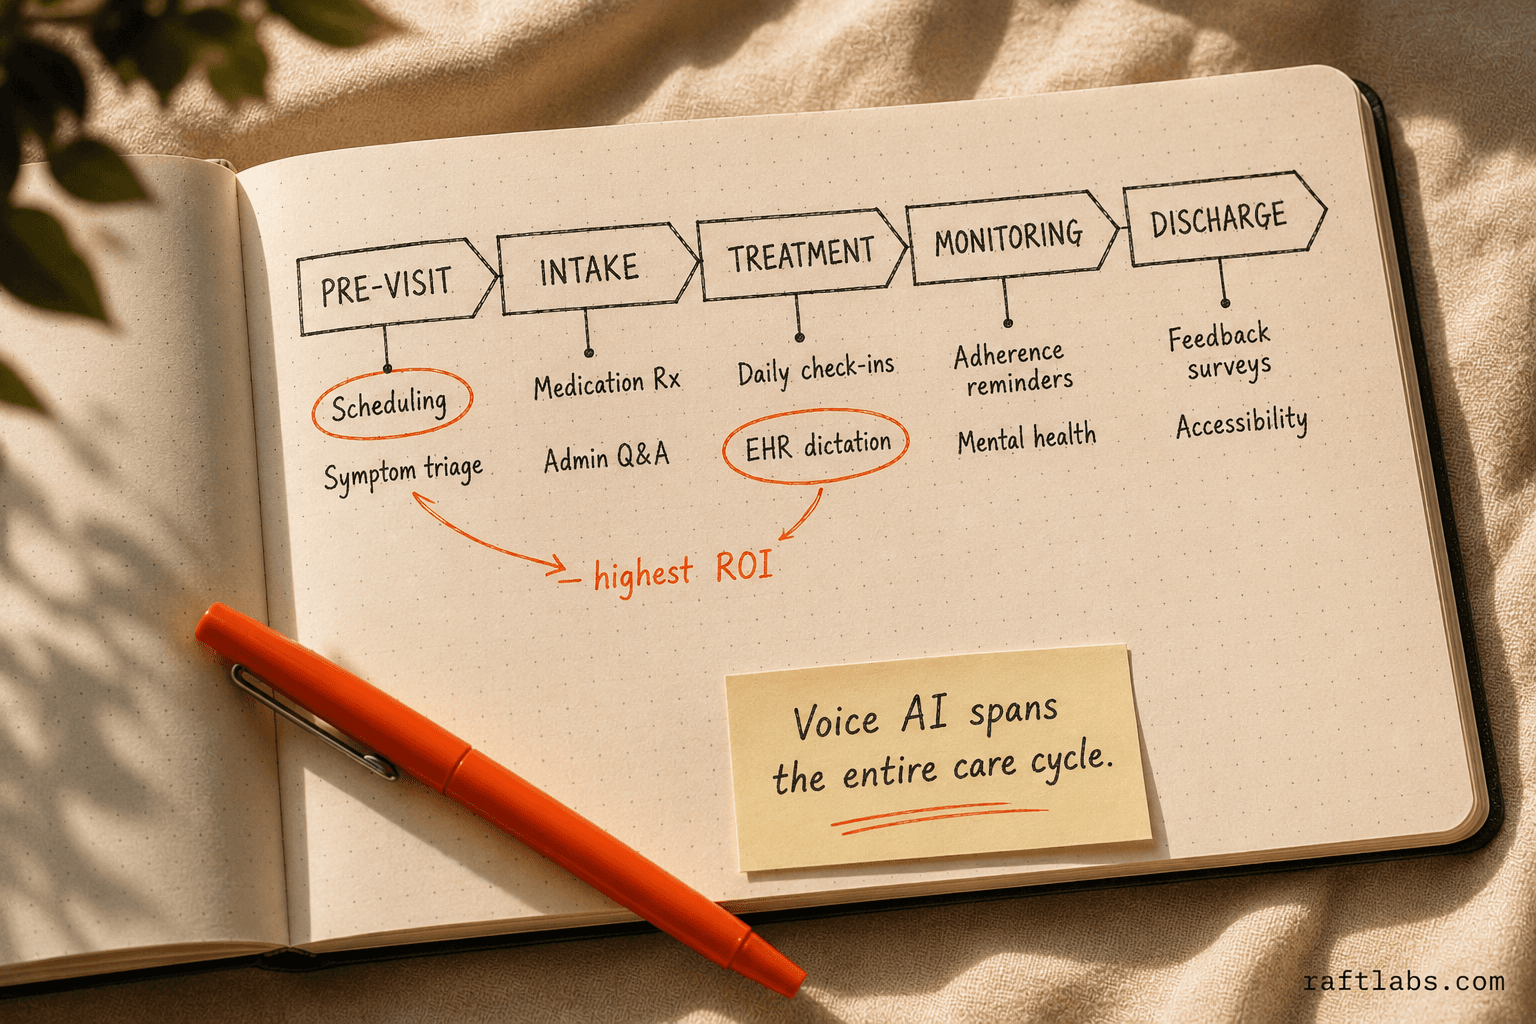 PRE-VISIT
INTAKE
TREATMENT
MONITORING
DISCHARGE
Scheduling
Symptom triage
Medication Rx
Admin Q&A
Daily check-ins
EHR dictation
Adherence
reminders
Mental health
Feedback
surveys
Accessibility
– highest ROI
Voice AI spans
the entire care cycle.
raftlabs.com